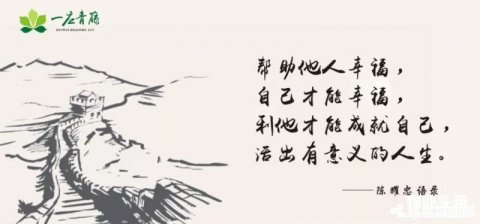 一座青藤
帮助他人幸福，
自己才能幸福，
利他才能成就自己，
活出有意义的人生。
——陈耀忠语录